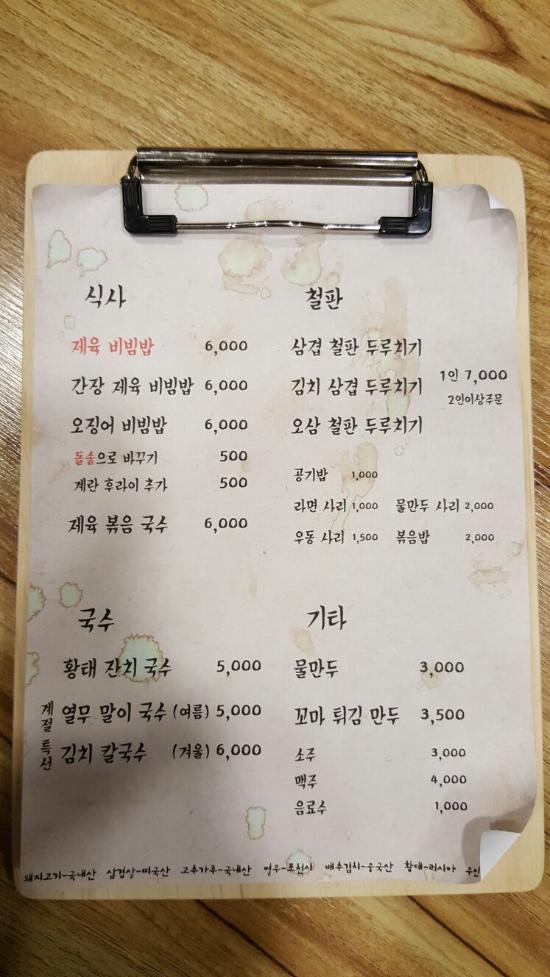 식사
제육 비빔밥 6,000
간장 제육 비빔밥 6,000
오징어 비빔밥 6,000
돌솥으로 바꾸기 500
계란 후라이 추가 500
제육 볶음 국수 6,000
철판
삼겹 철판 두루치기
김치 삼겹 두루치기
오삼 철판 두루치기
1인 7,000
2인이상주문
공기밥 1,000
라면 사리 1,000 물만두 사리 2,000
우동 사리 1,500 볶음밥 2,000
국수
황태 잔치 국수 5,000
계절특선
열무 말이 국수 (여름) 5,000
김치 칼국수 (겨울) 6,000
기타
물만두 3,000
꼬마 튀김 만두 3,500
소주 3,000
맥주 4,000
음료수 1,000
돼지고기-국내산 삼겹살-미국산 고추가루-국내산 열무-포천시 배추김치-중국산 황태-러시아